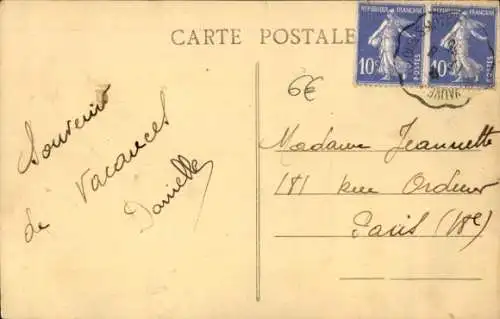 CARTE POSTALE
RÉPUBLIQUE FRANÇAISE
10c
POSTES
RÉPUBLIQUE FRANÇAISE
10c
POSTES
6€
Souvenir
de Vacances
Danielle
Madame Jeannette
181 rue Ordener
Paris